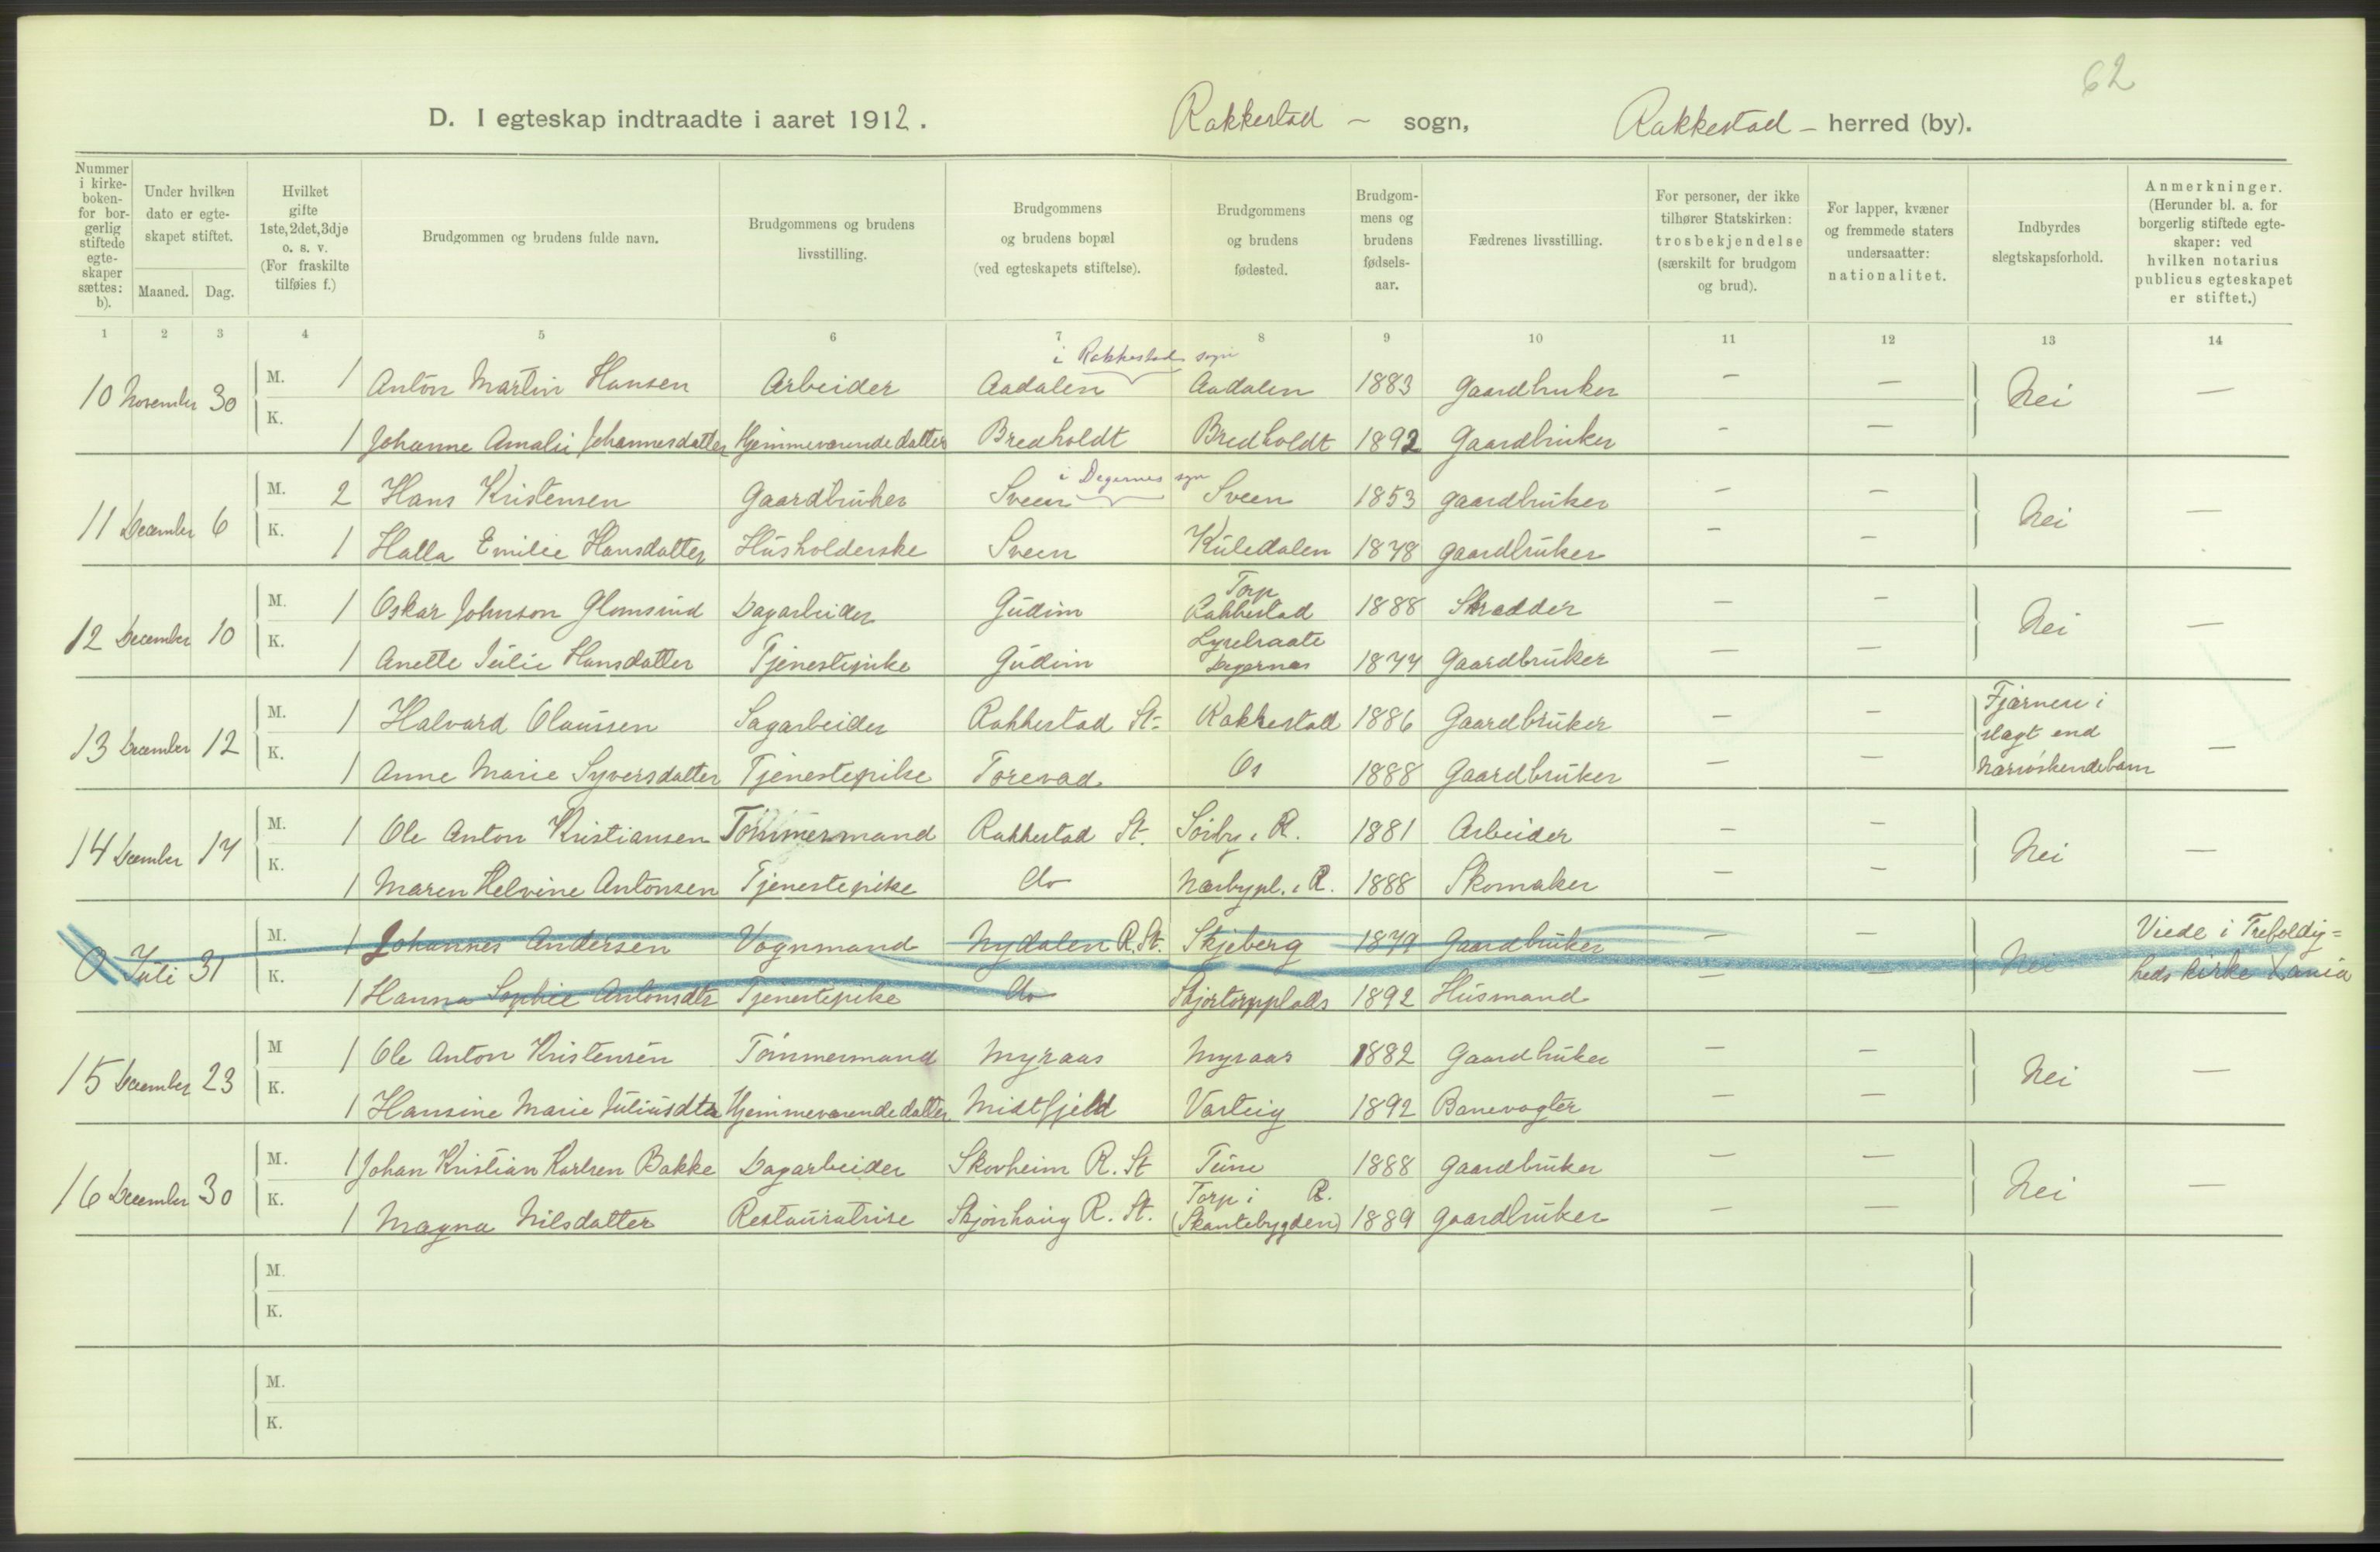 62
D. I egteskap indtraadte i aaret 1912. Rakkestad – sogn, Rakkestad – herred (by).
Nummer i kirke- boken- for bor- gerlig stiftede egte- skaper sættes: b).
Under hvilken dato er egte- skapet stiftet.
Maaned. Dag.
Hvilket gifte 1ste, 2det, 3dje o. s. v. (For fraskilte tilføies f.)
Brudgommen og brudens fulde navn.
Brudgommens og brudens livsstilling.
Brudgommens og brudens bopæl (ved egteskapets stiftelse).
Brudgommens og brudens fødested.
Brudgom- mens og brudens fødsels- aar.
Fædrenes livsstilling.
For personer, der ikke tilhører Statskirken: trosbekjendelse (særskilt for brudgom og brud).
For lapper, kvæner og fremmede staters undersaatter: nationalitet.
Indbyrdes slegtskapsforhold.
Anmerkninger. (Herunder bl. a. for borgerlig stiftede egte- skaper: ved hvilken notarius publicus egteskapet er stiftet.)
1 2 3 4 5 6 7 8 9 10 11 12 13 14
i Rakkestad sogn
10 November 30 M. 1 Anton Martin Hansen Arbeider Aadalen Aadalen 1883 Gaardbruker – – Nei –
K. 1 Johanne Amalie Johannesdatter Hjemmeværende datter Bredholdt Bredholdt 1892 Gaardbruker – –
i Degernes sgn
11 December 6 M. 2 Hans Kristensen Gaardbruker Sveen Sveen 1853 gaardbruker – – Nei –
K. 1 Halla Emilie Hansdatter Husholderske Sveen Kuledalen 1878 gaardbruker – –
12 December 10 M. 1 Oskar Johnson Glomsrud Dagarbeider Gudim Torp Rakkestad 1888 Skrædder – – Nei –
K. 1 Anette Julie Hansdatter Tjenestepike Gudim Degernes 1877 Gaardbruker – –
13 December 12 M. 1 Halvard Olaussen Sagarbeider Rakkestad St. Rakkestad 1886 Gaardbruker – – Fjærnere i slægt end Næsøskendebarn –
K. 1 Anne Marie Syversdatter Tjenestepike Torevad Os 1888 Gaardbruker – –
14 December 17 M. 1 Ole Anton Kristiansen Tømmermand Rakkestad St. Sørby i R. 1881 Arbeider – – Nei –
K. 1 Maren Helvine Antonsen Tjenestepike do Næsbypl. i R. 1888 Skomaker – –
0 Juli 31 M. 1 Johannes Andersen Vognmand Nydalen R. St. Skjeberg 1879 Gaardbruker – – Nei Viede i Trefoldig= heds kirke X.ania
K. 1 Hanna Sophie Antonsdtr Tjenestepike do Skjørtorpplads 1892 Husmand – –
15 December 23 M 1 Ole Anton Kristensen Tømmermand Myraas Myraas 1882 Gaardbruker – – Nei –
K. 1 Hansine Marie Juliusdtr Hjemmeværende datter Midtfjeld Varteig 1892 Banevogter – –
16 December 30 M. 1 Johan Kristian Karlsen Bakke Dagarbeider Skovheim R. St Tune 1888 gaardbruker – – Nei –
K. 1 Magna Nilsdatter Restauratrise Skjønhaug R. St. Torp i R. (Skantebygden) 1889 gaardbruker – –
M.
K.
M.
K.